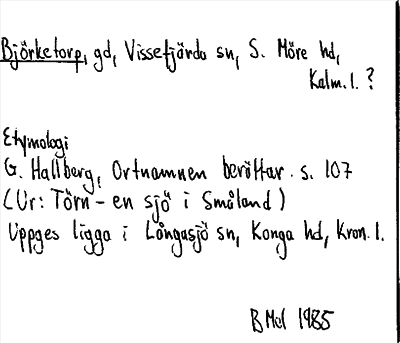 Björketorp, gd, Vissefjärda sn, S. Möre hd,
Kalm. l. ?
Etymologi
G. Hallberg, Ortnamnen berättar. s. 107
(Ur: Törn - en sjö i Småland)
Uppges ligga i Långasjö sn, Konga hd, Kron. l.
BMcl 1985